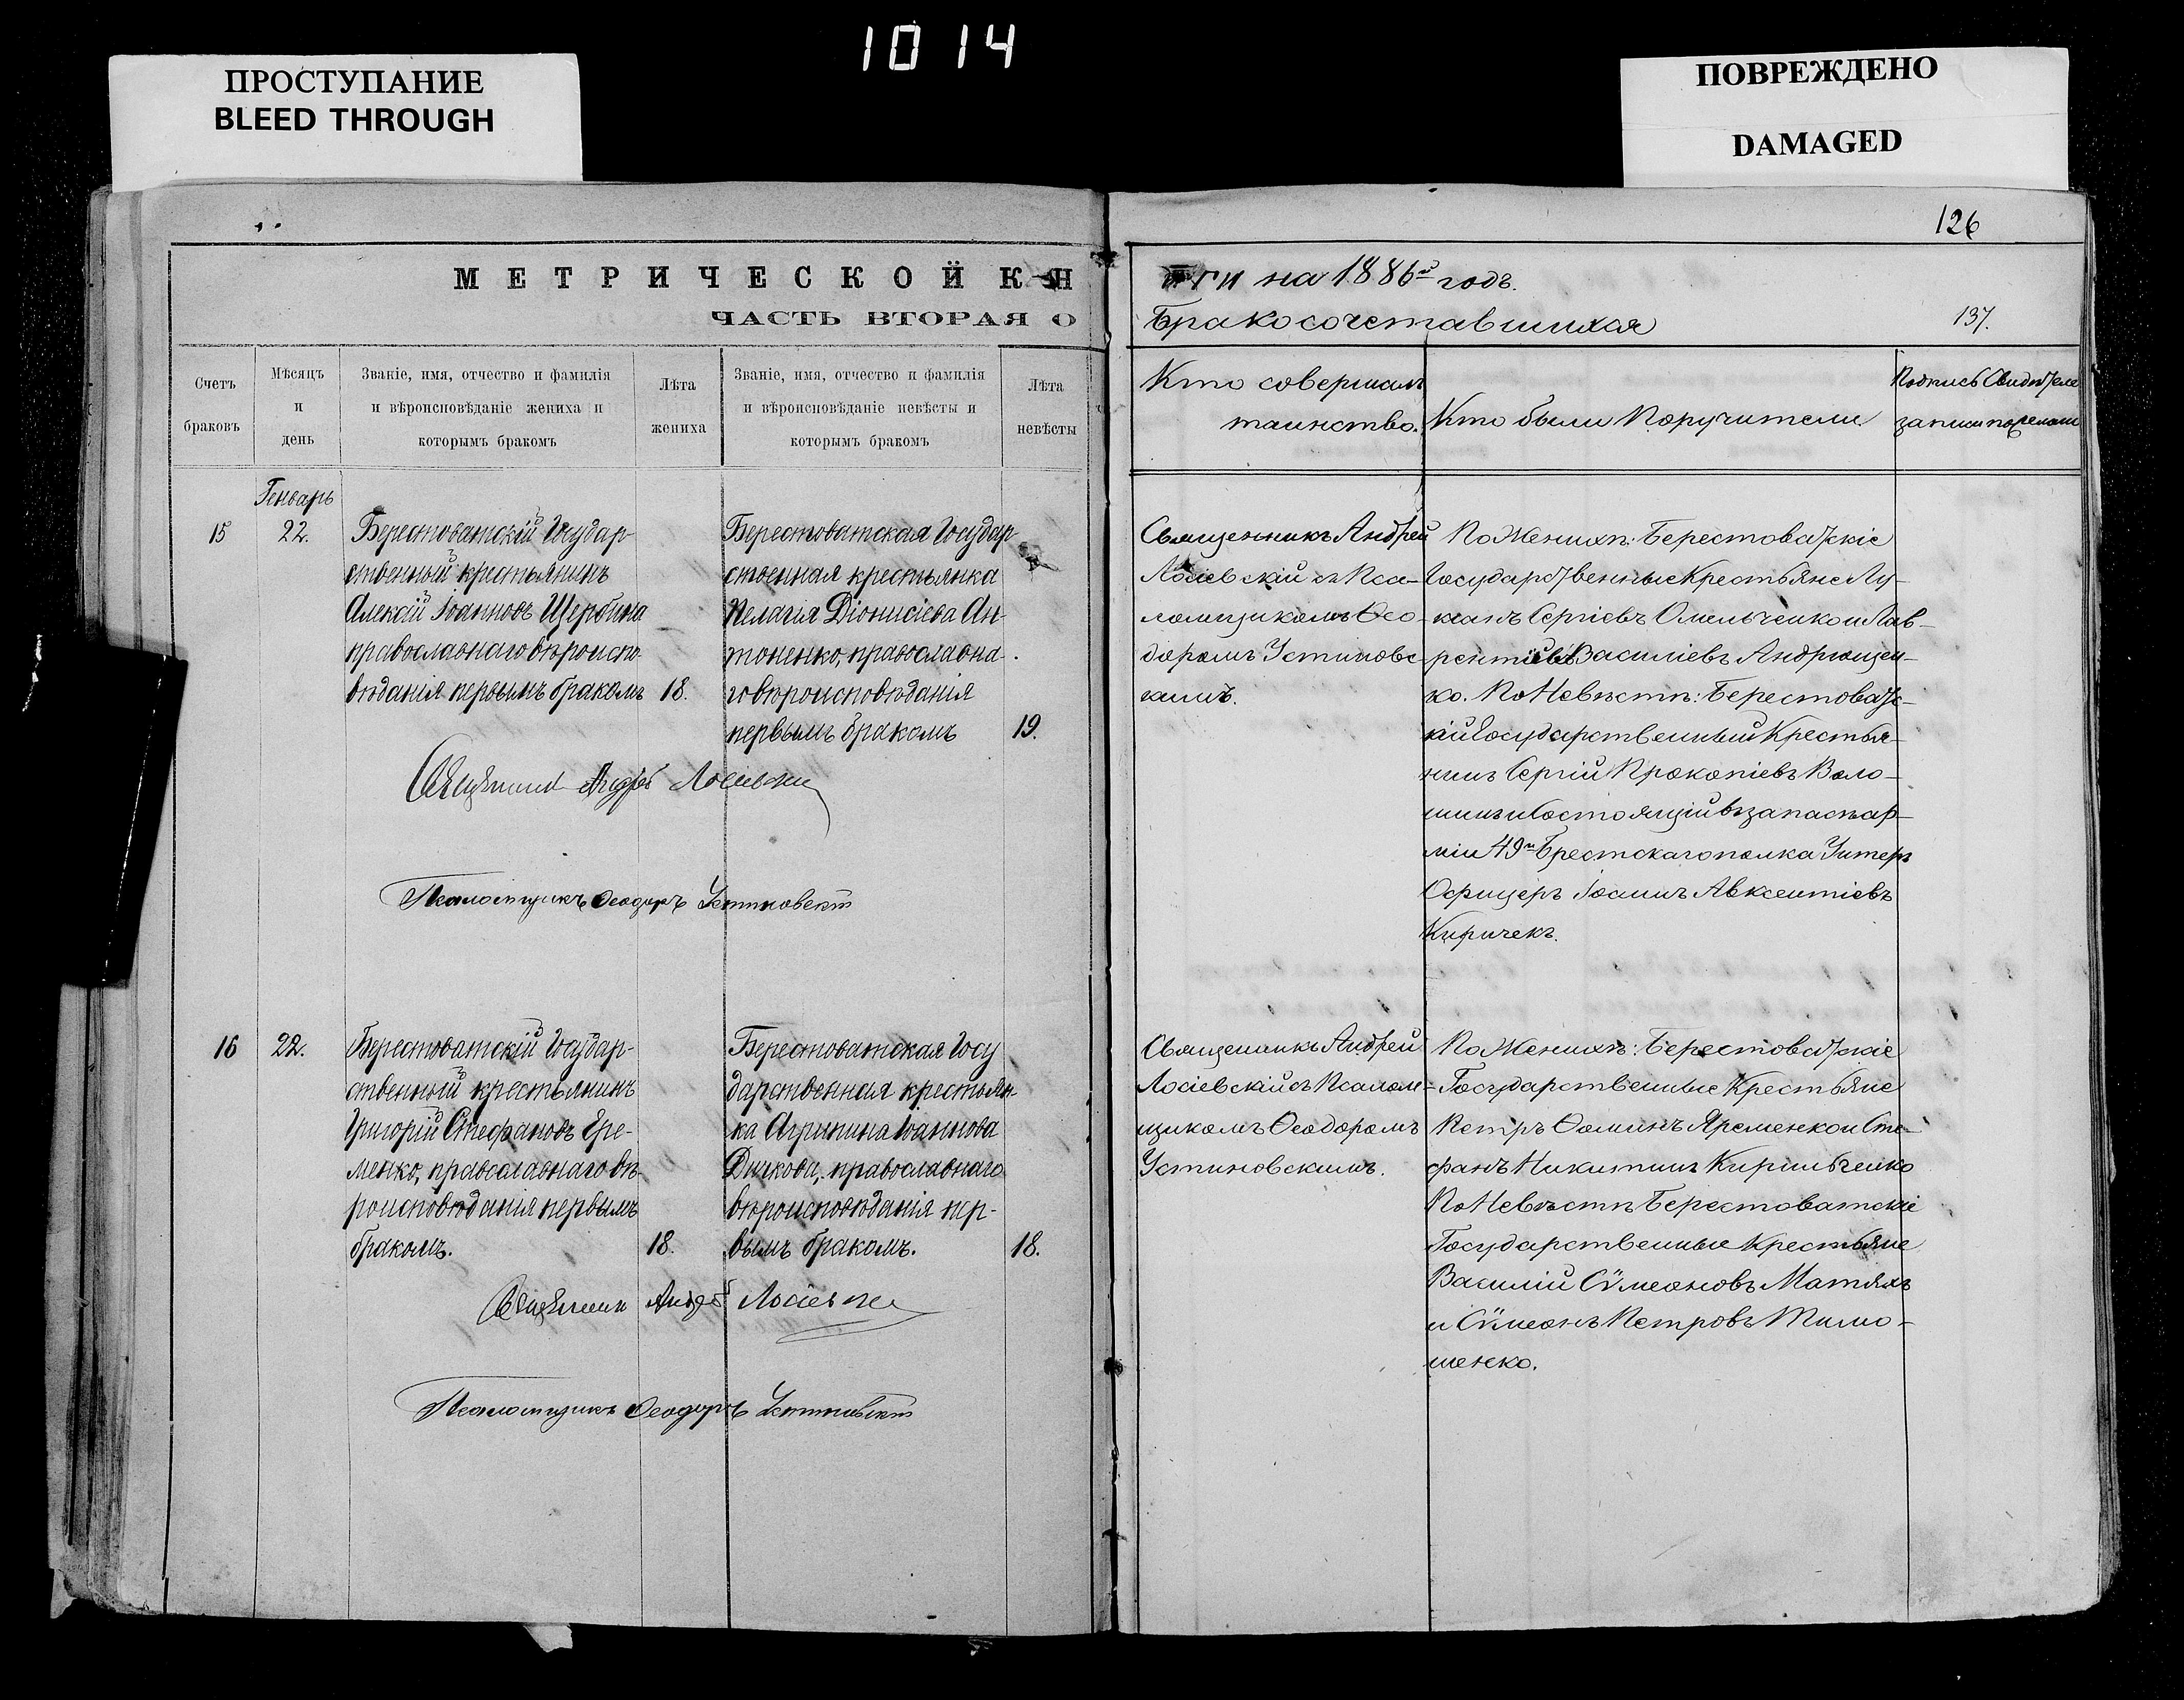 1014
ПРОСТУПАНИЕ
BLEED THROUGH
ПОВРЕЖДЕНО
DAMAGED
126
МЕТРИЧЕСКОЙ КН
ЧАСТЬ ВТОРАЯ О
ги на 1886й годъ.
Бракосочетавшихся
137.
Счетъ
браковъ
Мѣсяцъ
и
день
Званіе, имя, отчество и фамилія
и вѣроисповѣданіе жениха и
которымъ бракомъ
Лѣта
жениха
Званіе, имя, отчество и фамилія
и вѣроисповѣданіе невѣсты и
которымъ бракомъ
Лѣта
невѣсты
Кто совершалъ
таинство.
Кто были Поручители
Подпись
записи
Генварь
15
22.
Берестоватскій Государ-
ственный крестьянинъ
Алексій Іоанновъ Щербина
православнаго вѣроиспо-
вѣданія первымъ бракомъ
18.
Берестоватская Государ-
ственная крестьянка
Пелагія Діонисіева Ан-
тоненко, православна-
го вѣроисповѣданія
первымъ бракомъ
19.
Священникъ Андрей
Лосіевскій съ Пса-
ломщикомъ Ѳео-
доромъ Устиновс-
кимъ.
По Женихѣ: Берестоватскіе
Государственные Крестьяне Лу-
кіанъ Сергіевъ Омельченко и Лав-
рентій Василіевъ Андрющен-
ко. По Невѣстѣ: Берестоватс-
кій Государственный Крестья-
нинъ Сергій Прокопіевъ Воло-
шинъ и Состоящій въ запасѣ ар-
міи 49го Брестскаго полка Унтеръ
Офицеръ Іоаннъ Авксентіевъ
Киричекъ.
Священникъ Андрей Лосіевскій
Псаломщикъ Ѳеодоръ Устиновскій
16
22.
Берестоватскій Государ-
ственный крестьянинъ
Григорій Стефановъ Ере-
менко, православнаго вѣ-
роисповѣданія первымъ
бракомъ.
18.
Берестоватская Госу
дарственная крестьян-
ка Агрипина Іоаннова
православнаго
вѣроисповѣданія пер-
вымъ бракомъ.
18.
Священникъ Андрей
Лосіевскій съ Псалом-
щикомъ Ѳеодоромъ
Устиновскимъ.
По Женихѣ: Берестоватскіе
Государственные Крестьяне
Петръ Ѳоминъ Яременко и Сте-
фанъ Никитинъ Кириленко
По Невѣстѣ Берестоватскіе
Государственные Крестьяне
Василій Сѵмеоновъ Матяхъ
и Сѵмеонъ Петровъ Тимо-
шенко.
Священникъ Андрей Лосіевскій
Псаломщикъ Ѳеодоръ Устиновскій